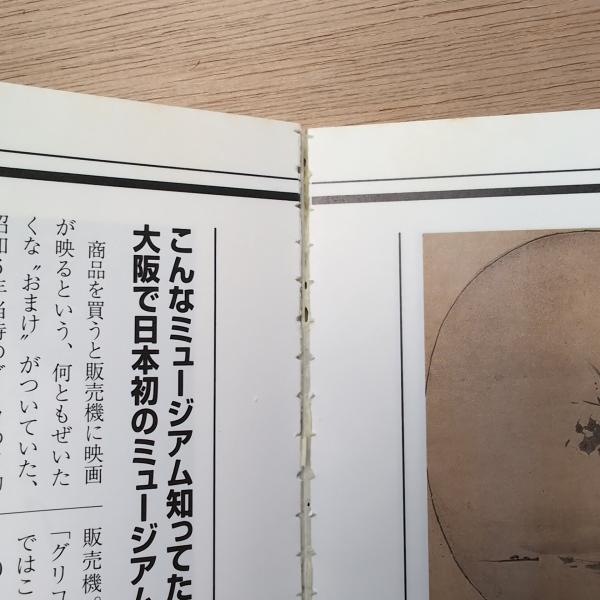 こんなミュージアム知ってた
大阪で日本初のミュージアム
商品を買うと販売機に映画
が映るという、何ともぜいた
くな〝おまけ〟がついていた、
昭和6年当時の
販売機。
「グリコ
ではこ